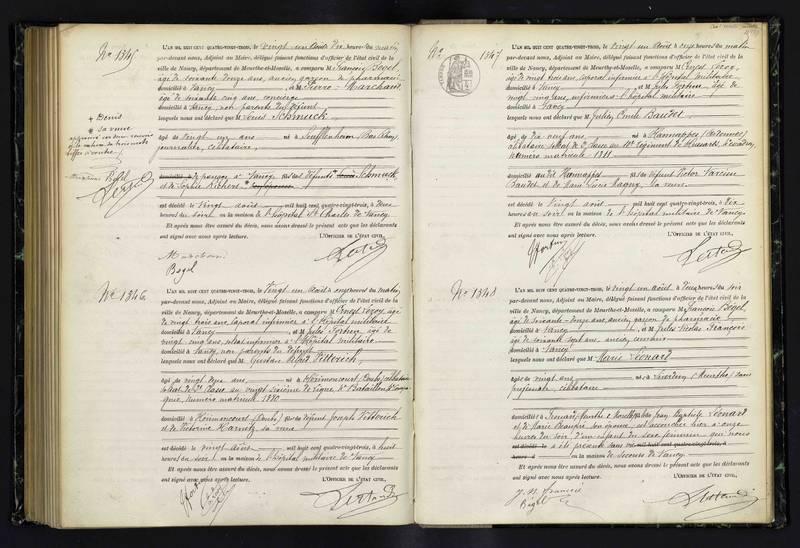 No 1345
L'AN MIL HUIT CENT QUATRE-VINGT-TROIS, le vingt un Août à dix heures du matin
par-devant nous, Adjoint au Maire, délégué faisant fonctions d'officier de l'état civil de la
ville de Nancy, département de Meurthe-et-Moselle, a comparu M. François Bégel,
âgé de soixante douze ans, ancien garçon de pharmacie
domicilié à Nancy et M. Pierre Marchand
âgé de soixante cinq ans, concierge
domicilié à Nancy, non parents du défunt
lesquels nous ont déclaré que M. Louis Schmuck
âgé de vingt un ans né à Soufflenheim (Bas Rhin)
journalier, célibataire,
domicilié à de passage à Nancy fils des défunts Schmuck
et de Sophie
est décédé le vingt août mil huit cent quatre-vingt-trois, à
heures du soir en la maison de l'hôpital St Charles de Nancy
Et après nous être assuré du décès, nous avons dressé le présent acte que les déclarants
ont signé avec nous après lecture. L'OFFICIER DE L'ÉTAT CIVIL,
Marchand
Bégel
+ Denis
+ sa veuve
Bégel
No 1346
L'AN MIL HUIT CENT QUATRE-VINGT-TROIS, le vingt un Août à onze heures du matin
par-devant nous, Adjoint au Maire, délégué faisant fonctions d'officier de l'état civil de la
ville de Nancy, département de Meurthe-et-Moselle, a comparu M. Ernest âgé
de vingt trois ans, caporal infirmier à l'hôpital militaire
domicilié à Nancy et M. Jules Fortun âgé de
vingt cinq ans, soldat infirmier à l'hôpital militaire
domicilié à Nancy, non parents du défunt
lesquels nous ont déclaré que M. Gustave
âgé de vingt deux ans né à Hérimoncourt (Doubs) célibataire
soldat de 2e classe au vingt sixième de ligne, 4e Bataillon
numéro matricule
domicilié à Hérimoncourt (Doubs) fils de défunt Joseph
et de Victorine sa veuve
est décédé le vingt août mil huit cent quatre-vingt-trois, à huit
heures du soir en la maison de l'hôpital militaire de Nancy
Et après nous être assuré du décès, nous avons dressé le présent acte que les déclarants
ont signé avec nous après lecture. L'OFFICIER DE L'ÉTAT CIVIL,
No 1347
L'AN MIL HUIT CENT QUATRE-VINGT-TROIS, le vingt un Août à onze heures du matin
par-devant nous, Adjoint au Maire, délégué faisant fonctions d'officier de l'état civil de la
ville de Nancy, département de Meurthe-et-Moselle, a comparu M. Ernest
âgé de vingt trois ans, caporal infirmier à l'hôpital militaire
domicilié à Nancy et M. Jules Fortun âgé de
vingt cinq ans, infirmier à l'hôpital militaire
domicilié à Nancy
lesquels nous ont déclaré que M. Julien Emile Baudet
âgé de dix neuf ans né à Hannappes (Ardennes)
célibataire, soldat de 2e classe au Régiment de Hussards,
numéro matricule 1311
domicilié audit Hannappes fils de défunt Victor Narcisse
Baudet et de Marie sa veuve
est décédé le vingt août mil huit cent quatre-vingt-trois, à dix
heures du soir en la maison de l'hôpital militaire de Nancy
Et après nous être assuré du décès, nous avons dressé le présent acte que les déclarants
ont signé avec nous après lecture. L'OFFICIER DE L'ÉTAT CIVIL,
No 1348
L'AN MIL HUIT CENT QUATRE-VINGT-TROIS, le vingt un août, à heures du soir
par-devant nous, Adjoint au Maire, délégué faisant fonctions d'officier de l'état civil de la
ville de Nancy, département de Meurthe-et-Moselle, a comparu M. François Bégel,
âgé de soixante douze ans, ancien garçon de pharmacie
domicilié à Nancy et M. Jules Nicolas François
âgé de soixante sept ans, ancien
domicilié à Nancy
lesquels nous ont déclaré que M. Marie Léonard
âgée de vingt ans née à (Meurthe) sans
profession, célibataire
domiciliée à fille de Jean Léonard
et de Marie son épouse, est accouchée hier à onze
heures du soir, d'un enfant du sexe féminin qui nous
est décédé le a été présenté sans vie mil huit cent quatre-vingt-trois, à
heures en la maison de Secours de Nancy
Et après nous être assuré du décès, nous avons dressé le présent acte que les déclarants
ont signé avec nous après lecture. L'OFFICIER DE L'ÉTAT CIVIL,
J. N. François
Bégel